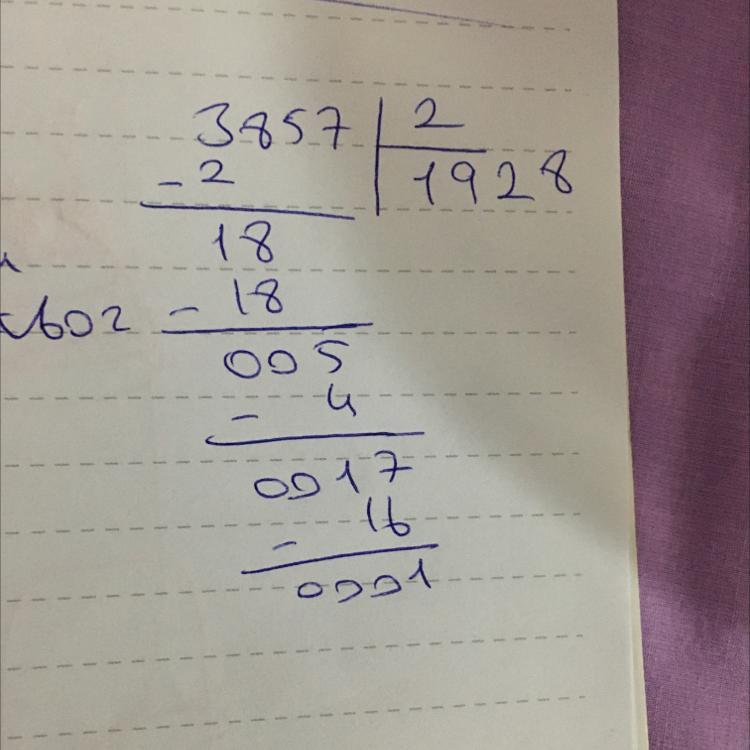 3857 2
- 2 1928
18
- 18
005
- 4
0017
- 16
0001